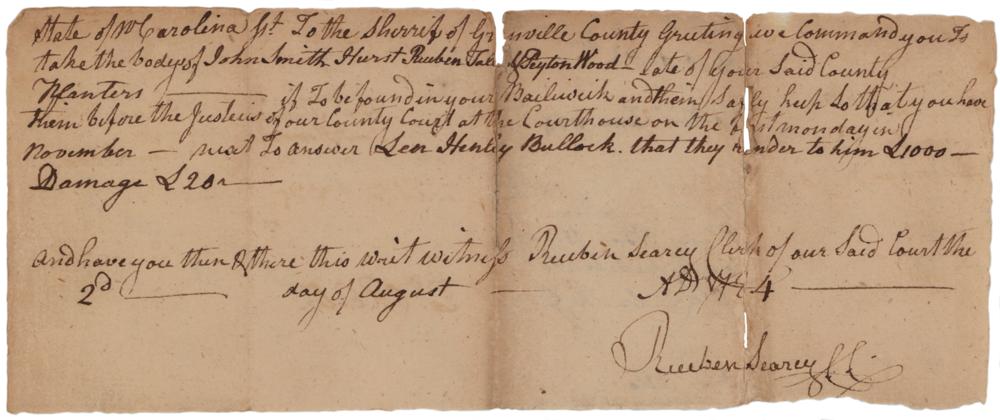 State of N Carolina Sst. To the Sherrif of Granville County Greeting we Command you To
take the bodys of John Smith Hurst Reuben & Peyton Wood — late of your Said County
Planters ——— if To be found in your Bailiwick and them Safly keep So that you have
them before the Justices of our County Court at the Courthouse on the first monday in
November — next To answer Len Henley Bullock. that they render to him £1000 —
Damage £20 ——
and have you then & there this writ witness Reuben Searcy Clerk of our Said Court the
2d ——— day of August — AD 4 ———
Reuben Searcy CC